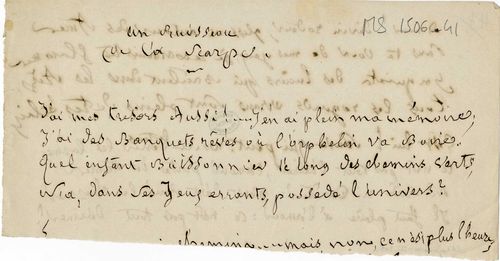 MS 1506-41
Un Ruisseau
de la Scarpe.
J'ai mes trésors Aussi.... J'en ai plein ma mémoire,
J'ai des Banquets rêvés où l'orphelin va Boire.
Quel enfant Buissonnier le long des chemins verts
N'a, dans ses Jeux errants, possédé l'univers?
chemin.... mais non, ce n'est plus l'heure,